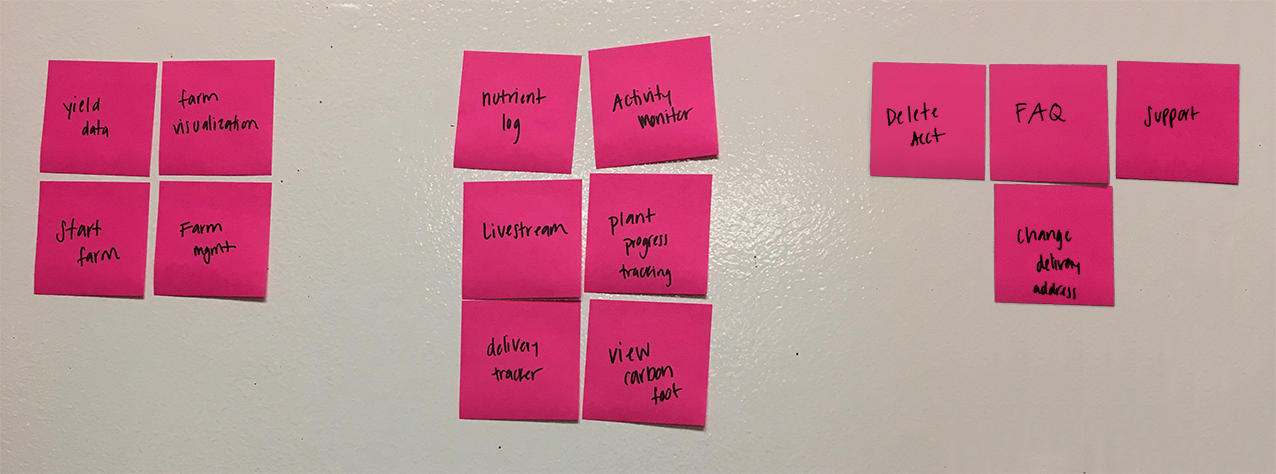 yield
data
farm
visualization
Start
farm
Farm
mgmt
nutrient
log
Activity
monitor
Livestream
plant
progress
tracking
delivery
tracker
view
carbon
foot
Delete
Acct
FAQ
Support
Change
delivery
address